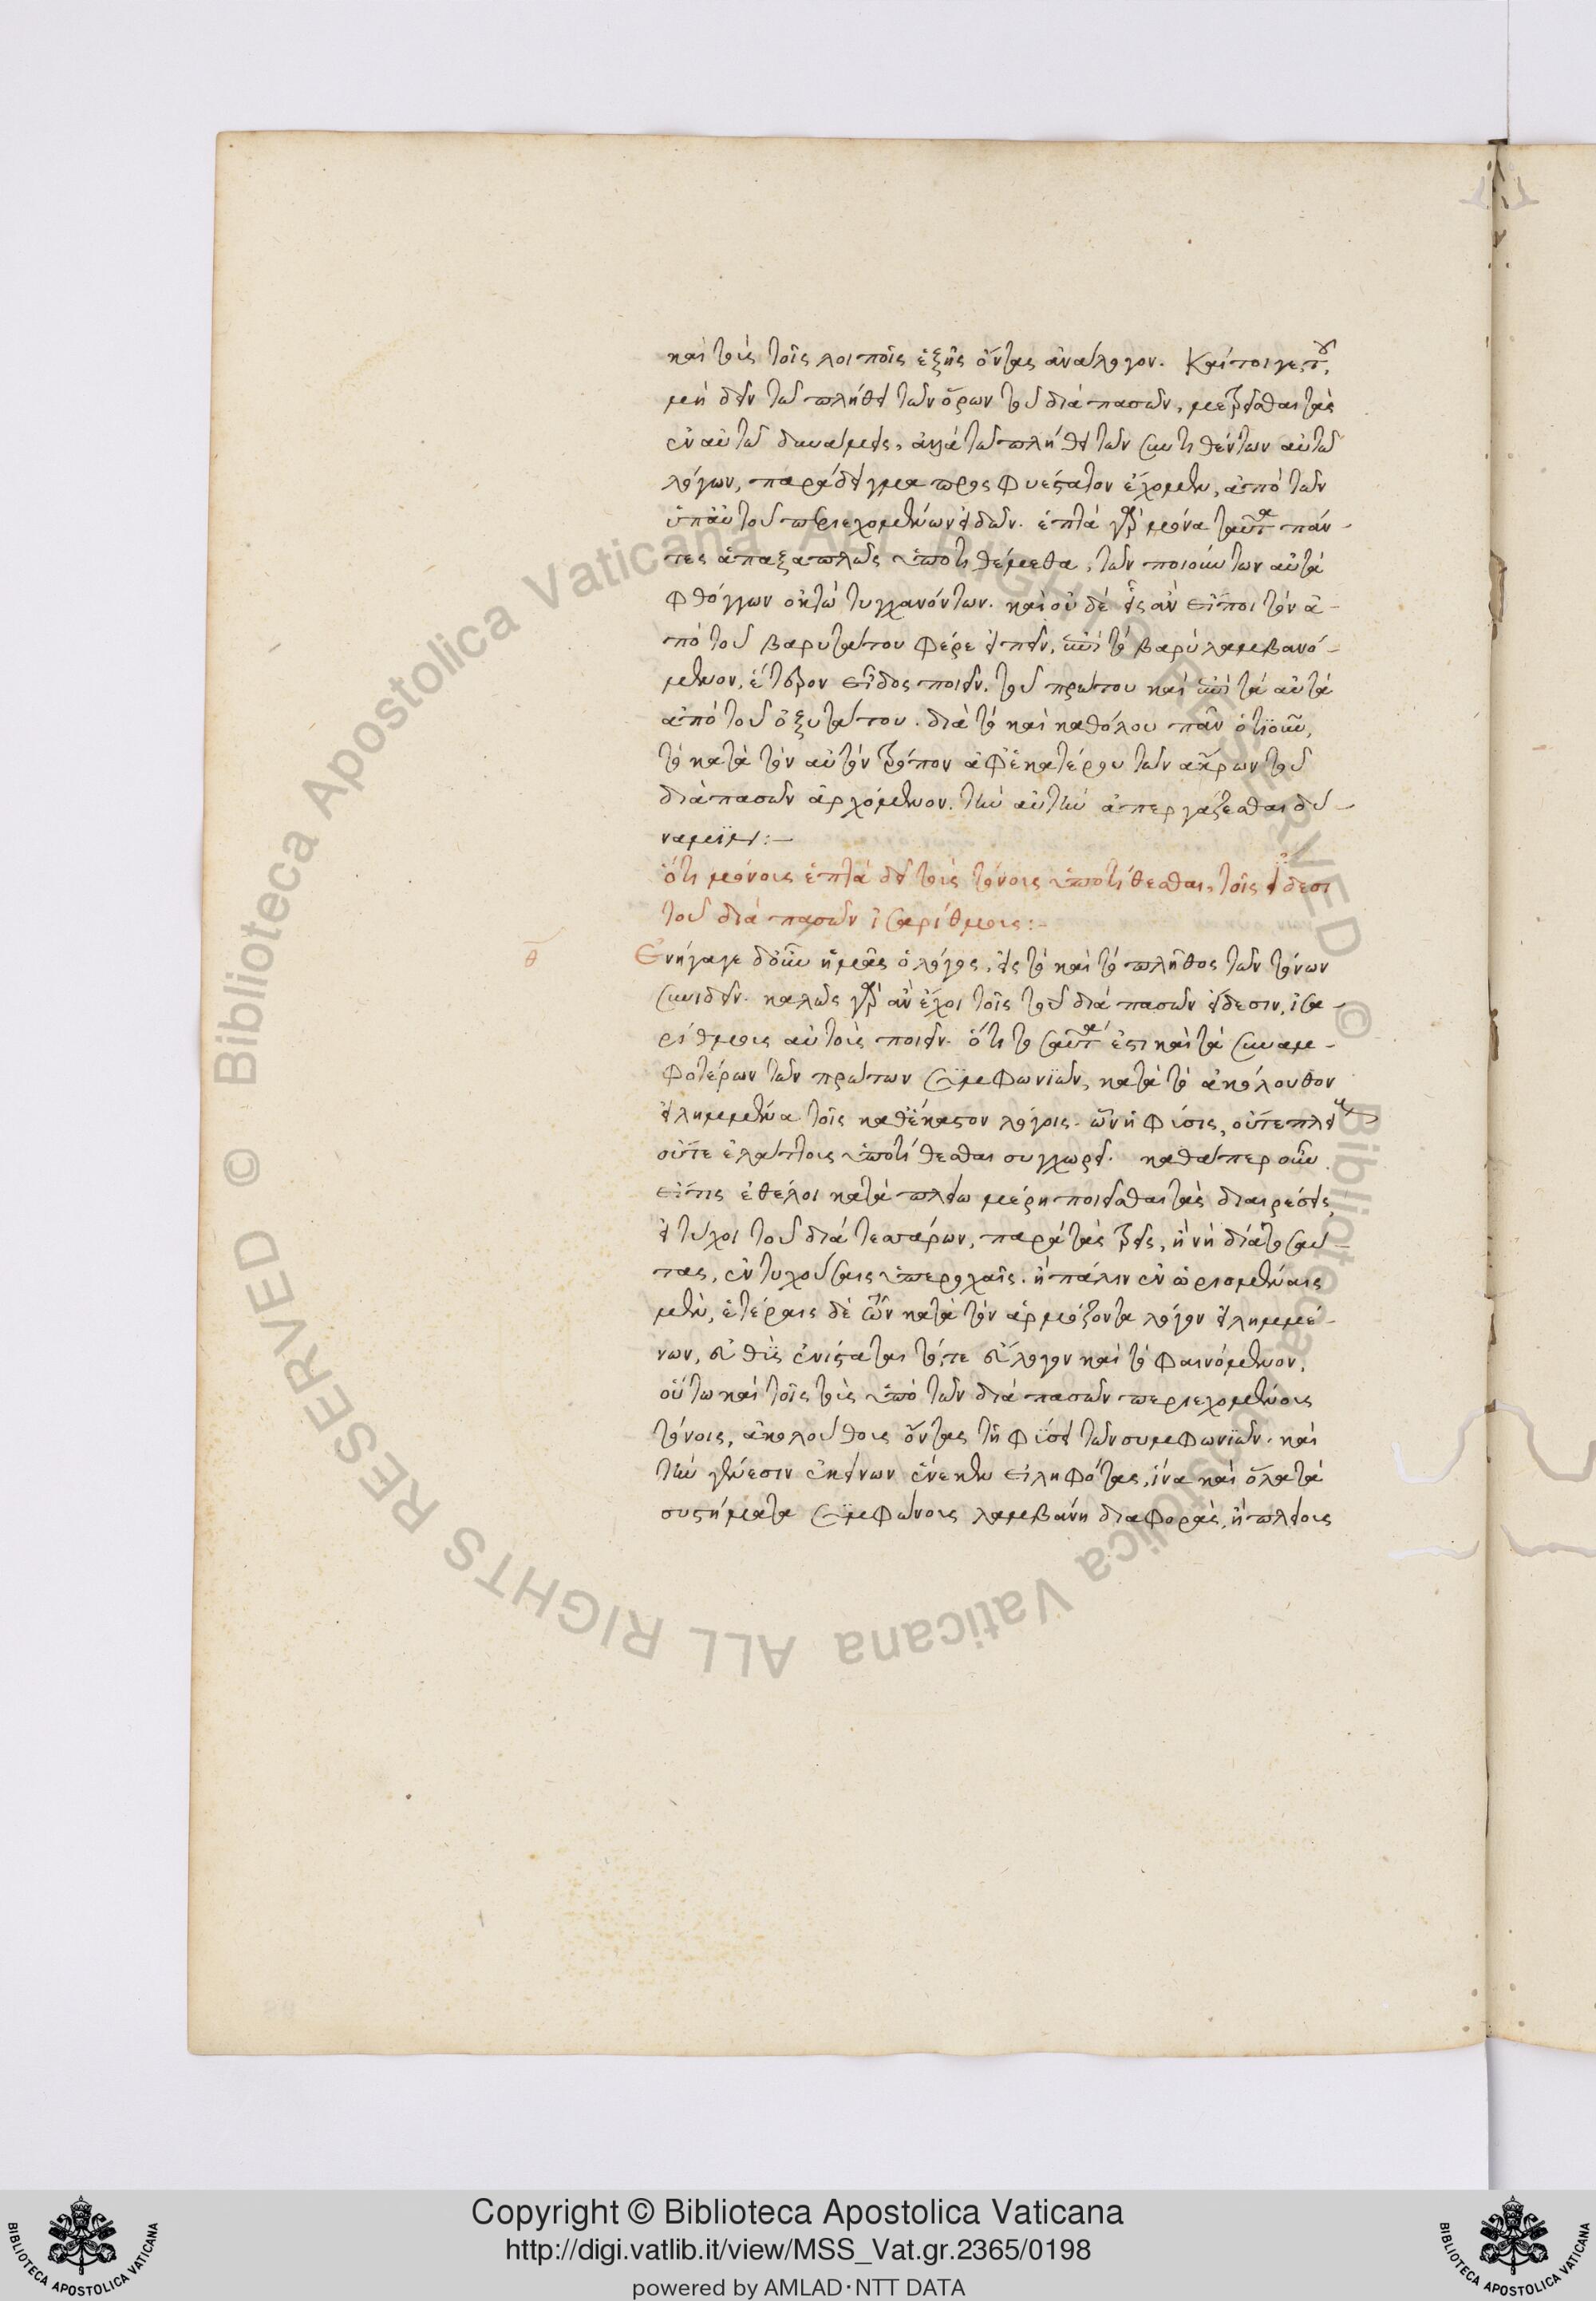 καὶ τοὺς τοῖς λοιποῖς ἑξῆς ὄντας ἀνάλογον. Καίτοιγε τοῦ,
μὴ δεῖν τῷ πλήθει τῶν ὅρων τοῦ διὰ πασῶν, μετρεῖσθαι τὰς
ἐν αὐτῷ δυνάμεις, ἀλλὰ τῷ πλήθει τῶν συντιθέντων αὐτὸ
λόγων, παράδειγμα προσφυέστατον ἔχομεν, ἀπὸ τῶν
ὑπ' αὐτοῦ περιεχομένων εἰδῶν. ἑπτὰ γὰρ μόνα ταῦτα πάν-
τες ἁπαξαπλῶς ὑποτιθέμεθα, τῶν ποιούντων αὐτὰ
φθόγγων ὀκτὼ τυγχανόντων. καὶ οὐδὲ εἷς ἂν εἴποι τὸν ἀ-
πὸ τοῦ βαρυτάτου φέρε εἰπεῖν, ἐπὶ τὸ βαρὺ λαμβανό-
μενον, ἕτερον εἶδος ποιεῖν, τοῦ πρώτου καὶ ἐπὶ τὰ αὐτὰ
ἀπὸ τοῦ ὀξυτάτου. διὰ τὸ καὶ καθόλου πᾶν ὁτιοῦν,
τὸ κατὰ τὸν αὐτὸν τρόπον ἀφ' ἑκατέρου τῶν ἄκρων τοῦ
διὰ πασῶν ἀρχόμενον. τὴν αὐτὴν ἀπεργάζεσθαι δύ-
ναμιν:–
ὅτι μόνους ἑπτὰ δεῖ τοὺς τόνους ὑποτίθεσθαι, τοῖς εἴδεσι
τοῦ διὰ πασῶν ἰσαρίθμους:–
θ
Ἐνήγαγε δ' οὖν ἡμᾶς ὁ λόγος, εἰς τὸ καὶ τὸ πλῆθος τῶν τόνων
συνιδεῖν. καλῶς γὰρ ἂν ἔχοι τοῖς τοῦ διὰ πασῶν εἴδεσιν, ἰσα-
ρίθμους αὐτοὺς ποιεῖν. ὅτι τοσαῦτά ἐστι καὶ τὰ συναμ-
φοτέρων τῶν πρώτων συμφωνιῶν, κατὰ τὸ ἀκόλουθον
εἰλημμένα τοῖς καθ' ἕκαστον λόγοις. ὧν ἡ φύσις, οὔτε πλείους
οὔτε ἐλάττους ὑποτίθεσθαι συγχωρεῖ. καθάπερ οὖν
εἴ τις ἐθέλοι κατὰ πλείω μέρη ποιεῖσθαι τὰς διαιρέσεις,
εἰ τύχοι τοῦ διὰ τεσσάρων, παρὰ τὰς τρεῖς, ἢ νὴ δία τοσαύ-
τας, ἐν τυχούσαις ὑπεροχαῖς. ἢ πάλιν ἐν ὡρισμέναις
μὲν, ἑτέραις δὲ τῶν κατὰ τὸν ἁρμόζοντα λόγον εἰλημμέ-
νων, εὐθὺς ἐνίσταται τό,τε εὔλογον καὶ τὸ φαινόμενον,
οὕτω καὶ τοῖς τοὺς ὑπὸ τῶν διὰ πασῶν περιεχομένους
τόνους, ἀκολούθους ὄντας τῇ φύσει τῶν συμφωνιῶν. καὶ
τὴν γένεσιν ἐκείνων ἕνεκεν εἰληφότας, ἵνα καὶ ὅλα τὰ
συστήματα συμφώνους λαμβάνῃ διαφορὰς, ἢ πλείους
Copyright © Biblioteca Apostolica Vaticana
http://digi.vatlib.it/view/MSS_Vat.gr.2365/0198
powered by AMLAD·NTT DATA
BIBLIOTECA APOSTOLICA VATICANA
BIBLIOTECA APOSTOLICA VATICANA
© Biblioteca Apostolica Vaticana ALL RIGHTS RESERVED
© Biblioteca Apostolica Vaticana ALL RIGHTS RESERVED